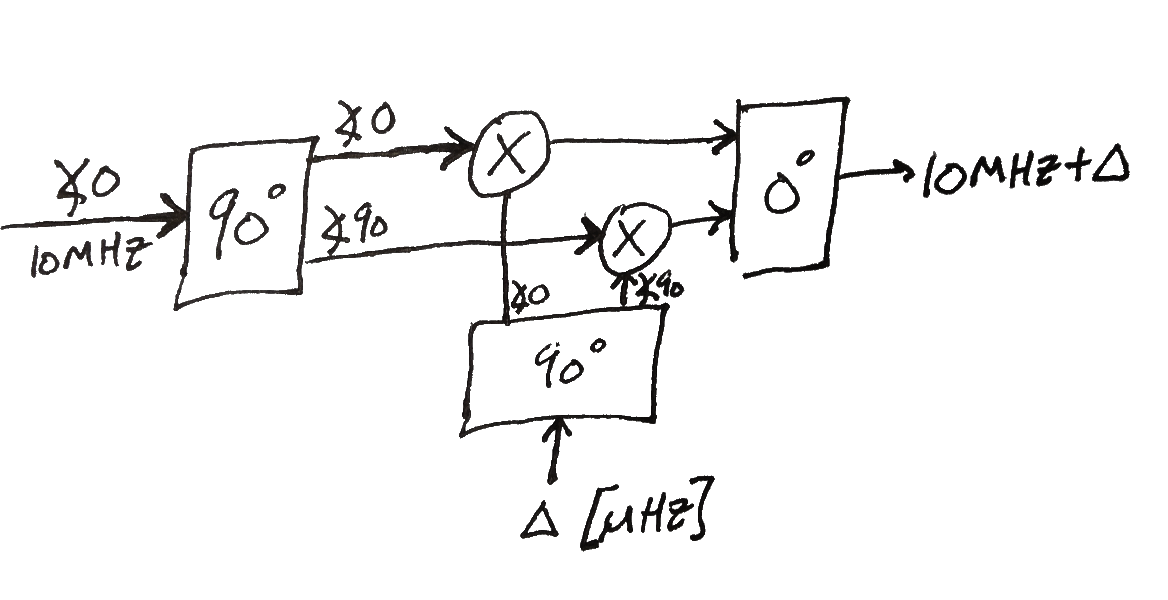 ∡0
10MHz
90°
∡0
∡90
X
X
∡0
∡90
90°
Δ [μHz]
0°
10MHz+Δ